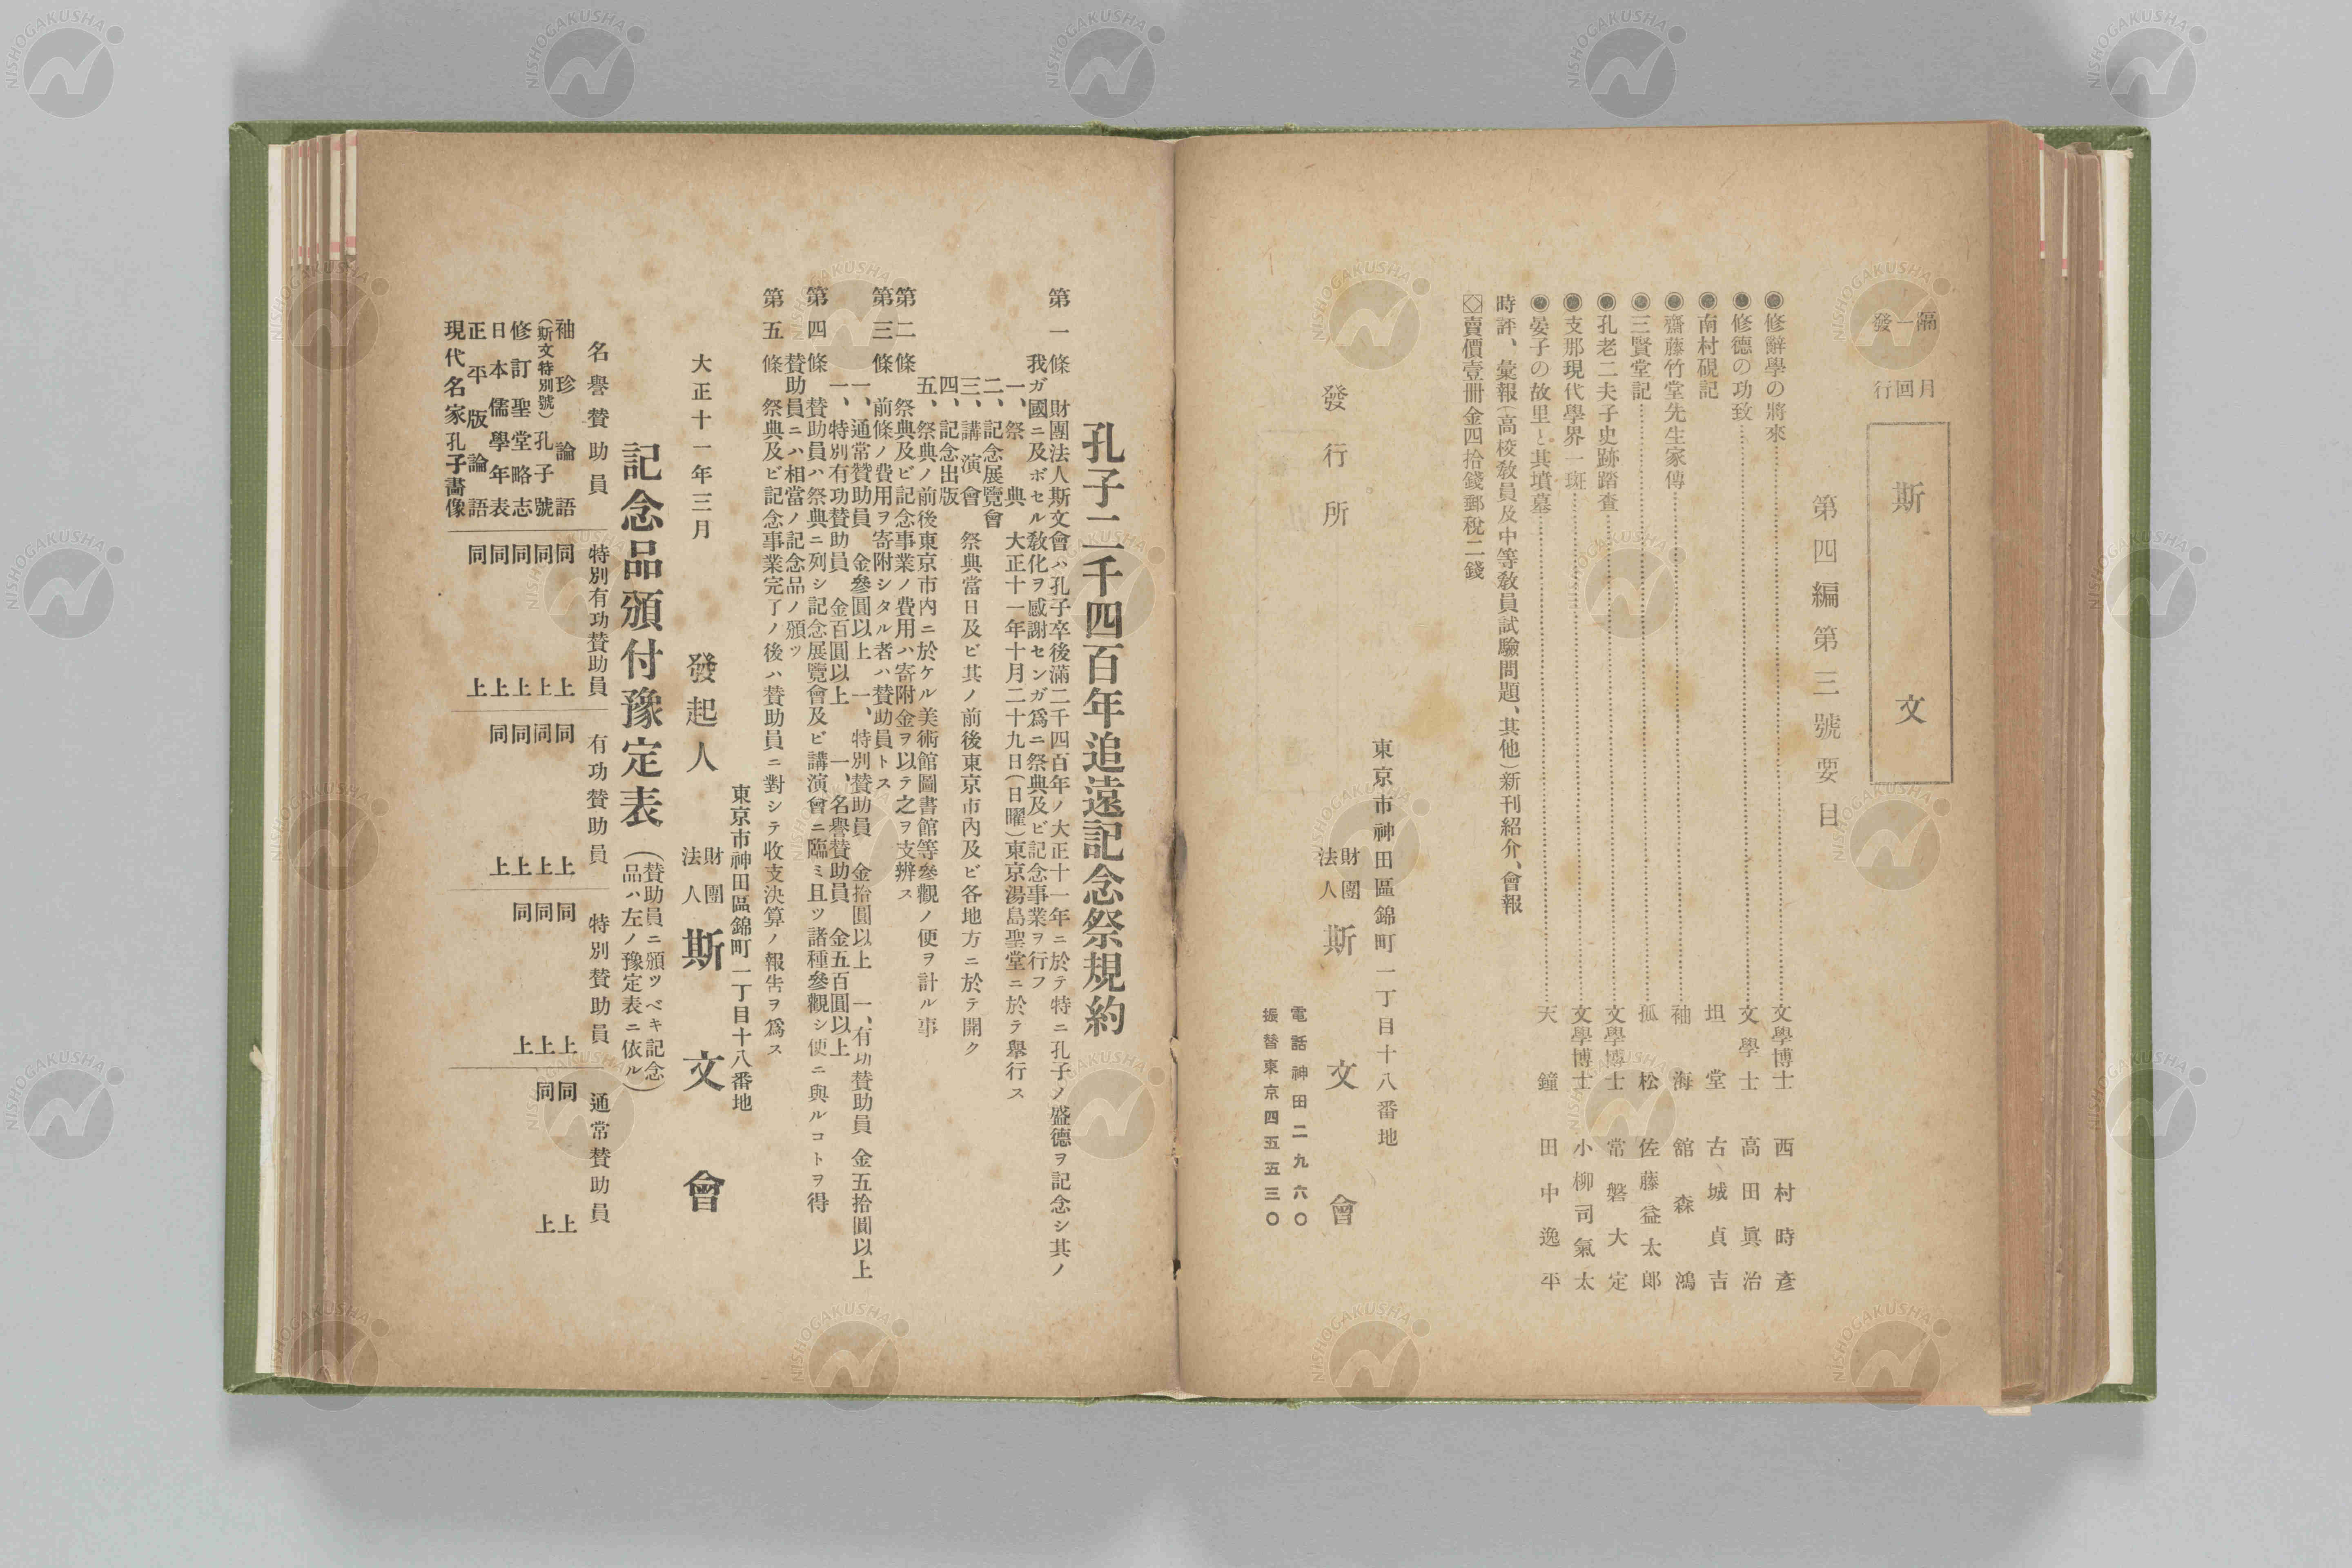 隔月
一回
發行
斯文
第四編第三號要目
◉修辭學の將來……文學博士 西村時彥
◉修德の功致……文學士 高田眞治
◉南村硯記 坦堂 古城貞吉
◉齋藤竹堂先生家傳……袖海 舘森鴻
◉三賢堂記……孤松 佐藤益太郎
◉孔老二夫子史跡踏査……文學博士 常磐大定
◉支那現代學界一斑……文學博士 小柳司氣太
◉晏子の故里と其墳墓……天鐘 田中逸平
時評、彙報(高校敎員及中等敎員試驗問題、其他)新刊紹介、會報
◇賣價壹册金四拾錢郵稅二錢
東京市神田區錦町一丁目十八番地
發行所 財團法人 斯文會
電話神田二九六〇
振替東京四五五三〇
孔子二千四百年追遠記念祭規約
第一條 財團法人斯文會ハ孔子卒後滿二千四百年ノ大正十一年ニ於テ特ニ孔子ノ盛德ヲ記念シ其ノ
我ガ國ニ及ボセル敎化ヲ感謝センガ爲ニ祭典及ビ記念事業ヲ行フ
一、祭典 大正十一年十月二十九日(日曜)東京湯島聖堂ニ於テ擧行ス
二、記念展覽會
三、講演會 祭典當日及ビ其ノ前後東京市內及ビ各地方ニ於テ開ク
四、記念出版
五、祭典ノ前後東京市內ニ於ケル美術館圖書館等參觀ノ便ヲ計ル事
第二條 祭典及ビ記念事業ノ費用ハ寄附金ヲ以テ之ヲ支辨ス
第三條 前條ノ費用ヲ寄附シタル者ハ贊助員トス
一、通常贊助員 金參圓以上 一、特別贊助員 金拾圓以上 一、有功贊助員 金五拾圓以上
一、特別有功贊助員 金百圓以上 一、名譽贊助員 金五百圓以上
第四條 贊助員ハ祭典ニ列シ記念展覽會及ビ講演會ニ臨ミ且ツ諸種參觀シ便ニ與ルコトヲ得
贊助員ニハ相當ノ記念品ノ頒ツ
第五條 祭典及ビ記念事業完了ノ後ハ贊助員ニ對シテ收支決算ノ報吿ヲ爲ス
東京市神田區錦町一丁目十八番地
大正十一年三月 發起人 財團法人 斯文會
記念品頒付豫定表(贊助員ニ頒ツベキ記念品ハ左ノ豫定表ニ依ル)
名譽贊助員 特別有功贊助員 有功贊助員 特別贊助員 通常贊助員
袖珍論語 同上 同上 同上 同上
(斯文特別號)孔子號 同上 同上 同上 同上
修訂聖堂略志 同上 同上 同上
日本儒學年表 同上 同上
正平版論語 同上
現代名家孔子畵像